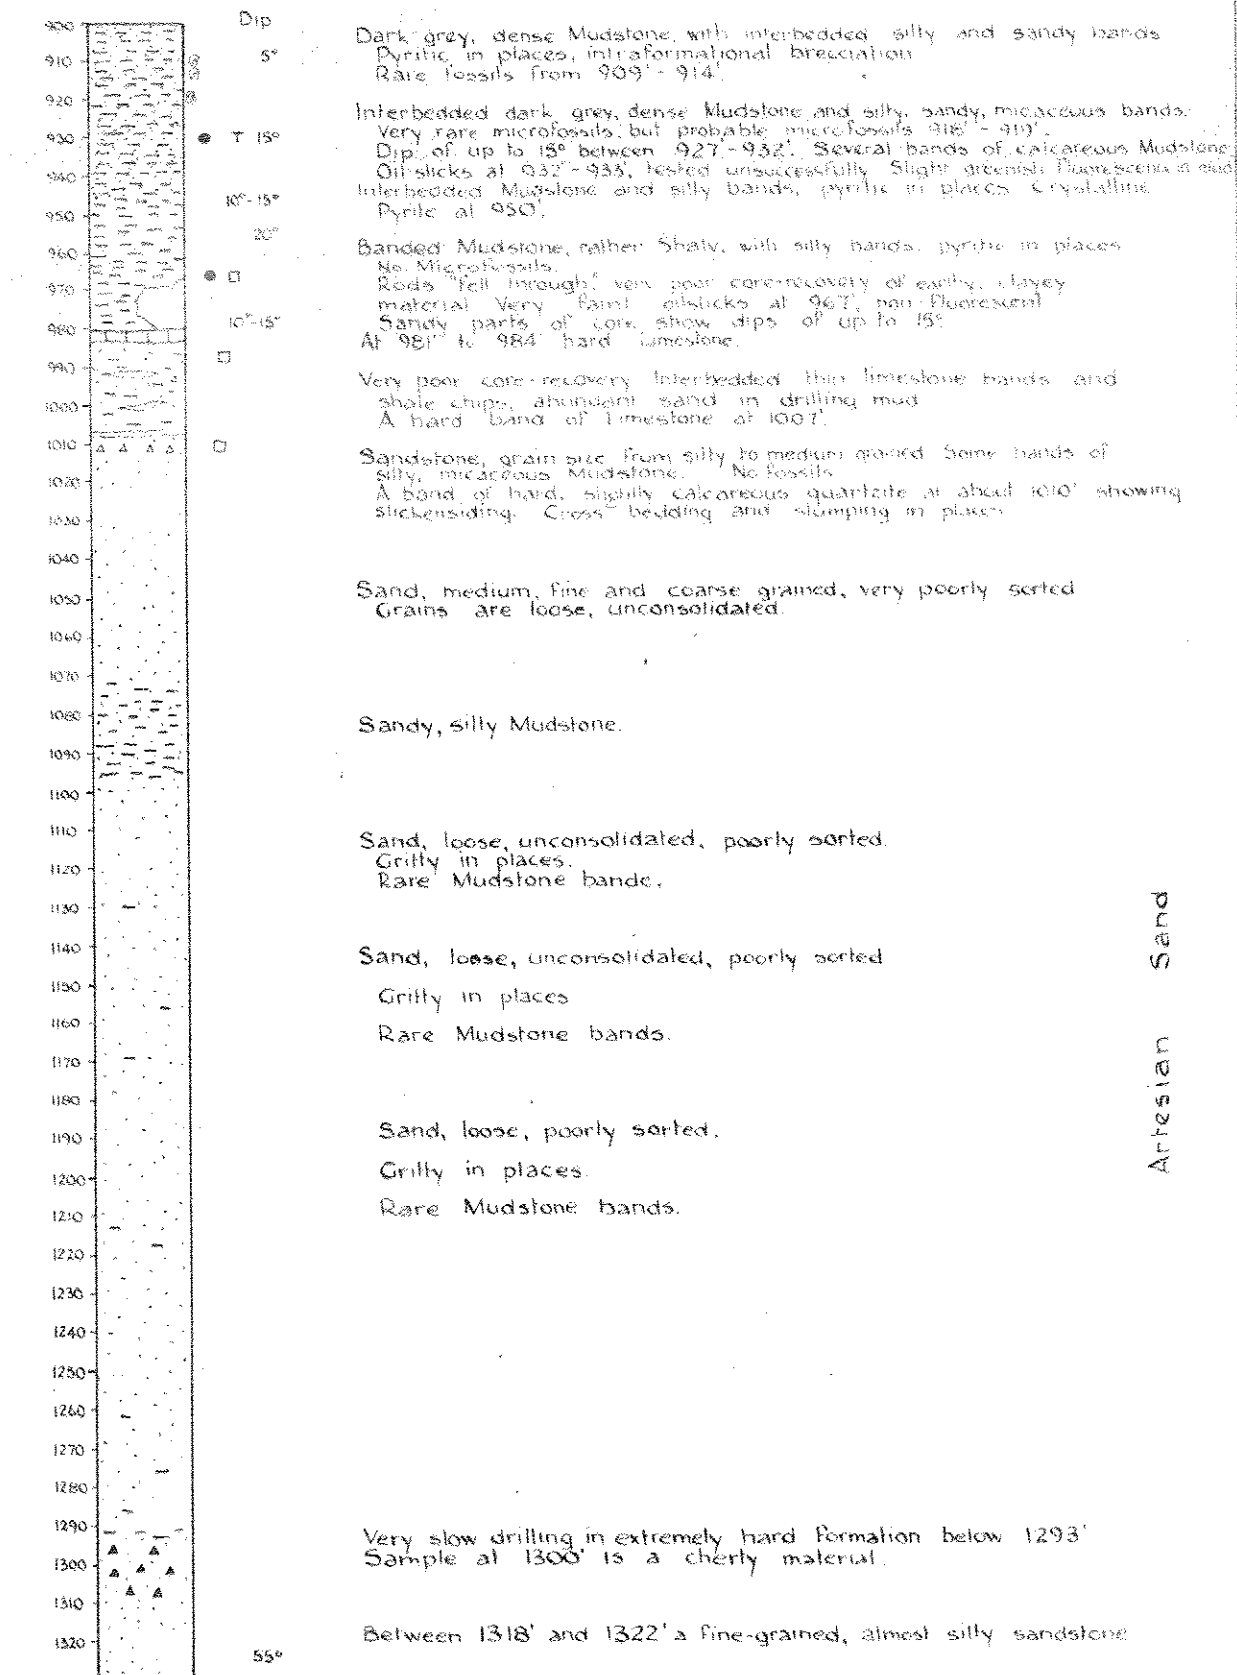 Dip
900
910
920
930
940
950
960
970
980
990
1000
1010
1020
1030
1040
1050
1060
1070
1080
1090
1100
1110
1120
1130
1140
1150
1160
1170
1180
1190
1200
1210
1220
1230
1240
1250
1260
1270
1280
1290
1300
1310
1320
5°
T 15°
10°-15°
20°
10°-15°
55°
Dark grey, dense Mudstone, with interbedded silty and sandy bands
Pyritic in places, intraformational brecciation
Rare fossils from 909' - 914'.
Interbedded dark grey, dense Mudstone and silty, sandy, micaceous bands.
Very rare microfossils, but probable microfossils 918' - 919'.
Dip of up to 15° between 927' - 932'. Several bands of calcareous Mudstone
Oil slicks at 932' - 933', tested unsuccessfully Slight greenish fluorescence in mud
Interbedded Mudstone and silty bands, pyritic in places Crystalline
Pyrite at 950'.
Banded Mudstone, rather Shaly, with silty bands, pyritic in places
No Microfossils.
Rods "fell through", very poor core-recovery of earthy, clayey
material Very faint oilslicks at 967', non-fluorescent
Sandy parts of core show dips of up to 15°
At 981' to 984' hard Limestone.
Very poor core-recovery Interbedded thin limestone bands and
shale chips, abundant sand in drilling mud
A hard band of Limestone at 1007'.
Sandstone, grain size from silty to medium grained Some bands of
silty, micaceous Mudstone. No fossils
A band of hard, slightly calcareous quartzite at about 1010' showing
slickensiding. Cross bedding and slumping in places
Sand, medium, fine and coarse grained, very poorly sorted
Grains are loose, unconsolidated.
Sandy, silty Mudstone.
Sand, loose, unconsolidated, poorly sorted.
Gritty in places.
Rare Mudstone bands.
Sand, loose, unconsolidated, poorly sorted
Gritty in places
Rare Mudstone bands.
Sand, loose, poorly sorted.
Gritty in places.
Rare Mudstone bands.
Artesian Sand
Very slow drilling in extremely hard formation below 1293'
Sample at 1300' is a cherty material.
Between 1318' and 1322' a fine-grained, almost silty sandstone